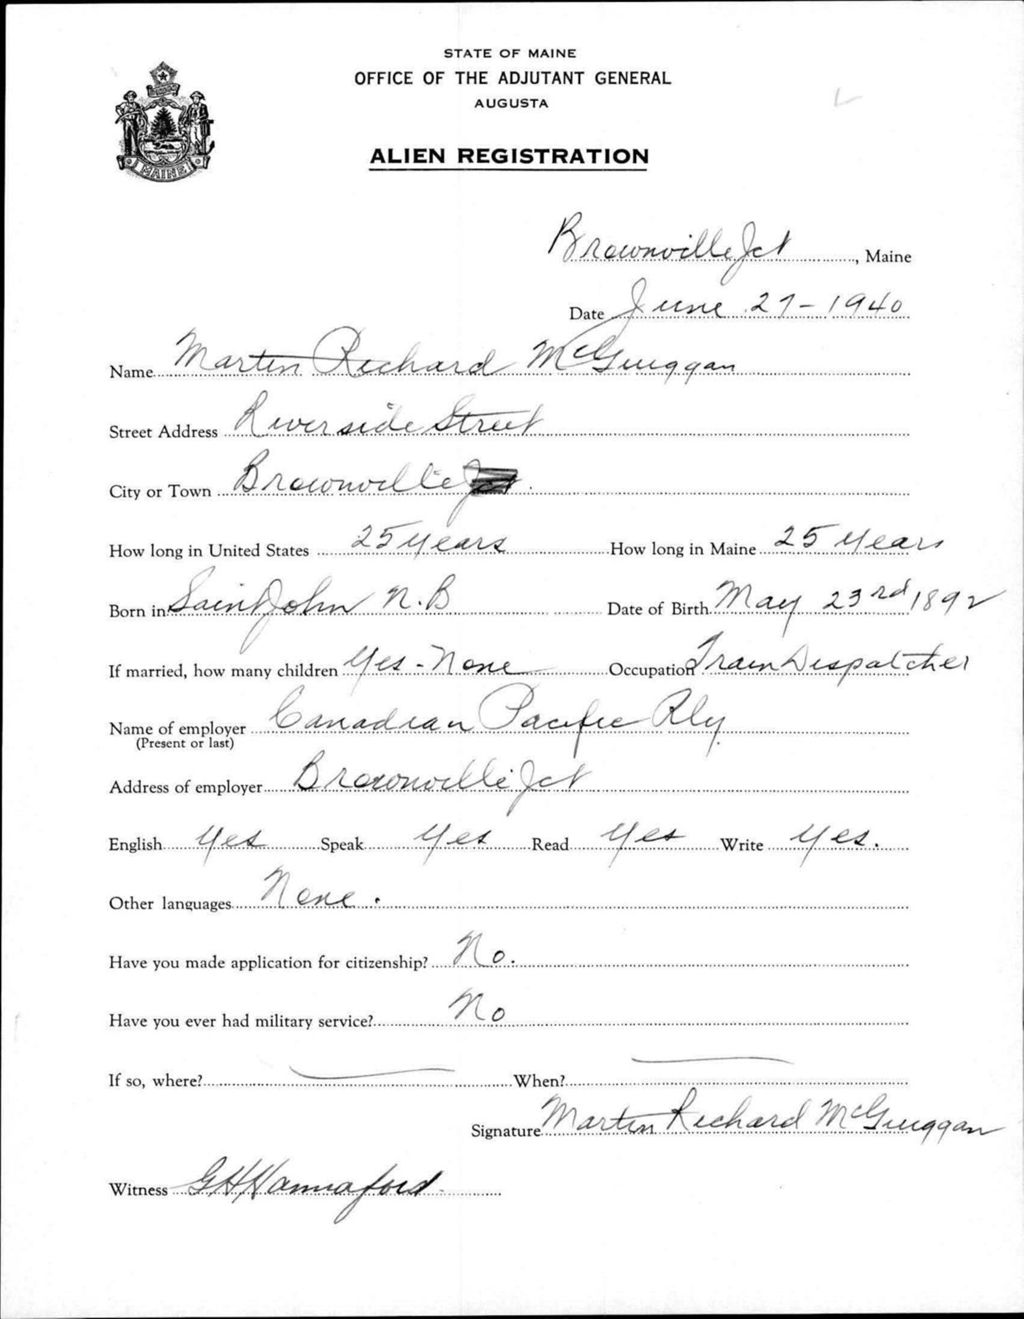 STATE OF MAINE
OFFICE OF THE ADJUTANT GENERAL
AUGUSTA
ALIEN REGISTRATION
MAINE
Brownville Jct, Maine
Date June 27-1940
Name Martin Richard McGuiggan
Street Address Riverside Street
City or Town Brownville Jct.
How long in United States 25 years How long in Maine 25 years
Born in Saint John N.B Date of Birth May 23rd 1892
If married, how many children Yes - None Occupation Train Dispatcher
Name of employer Canadian Pacific Rly.
(Present or last)
Address of employer Brownville Jct
English Yes Speak Yes Read Yes Write Yes.
Other languages None.
Have you made application for citizenship? No.
Have you ever had military service? No
If so, where? — When? —
Signature Martin Richard McGuiggan
Witness G H Hannaford